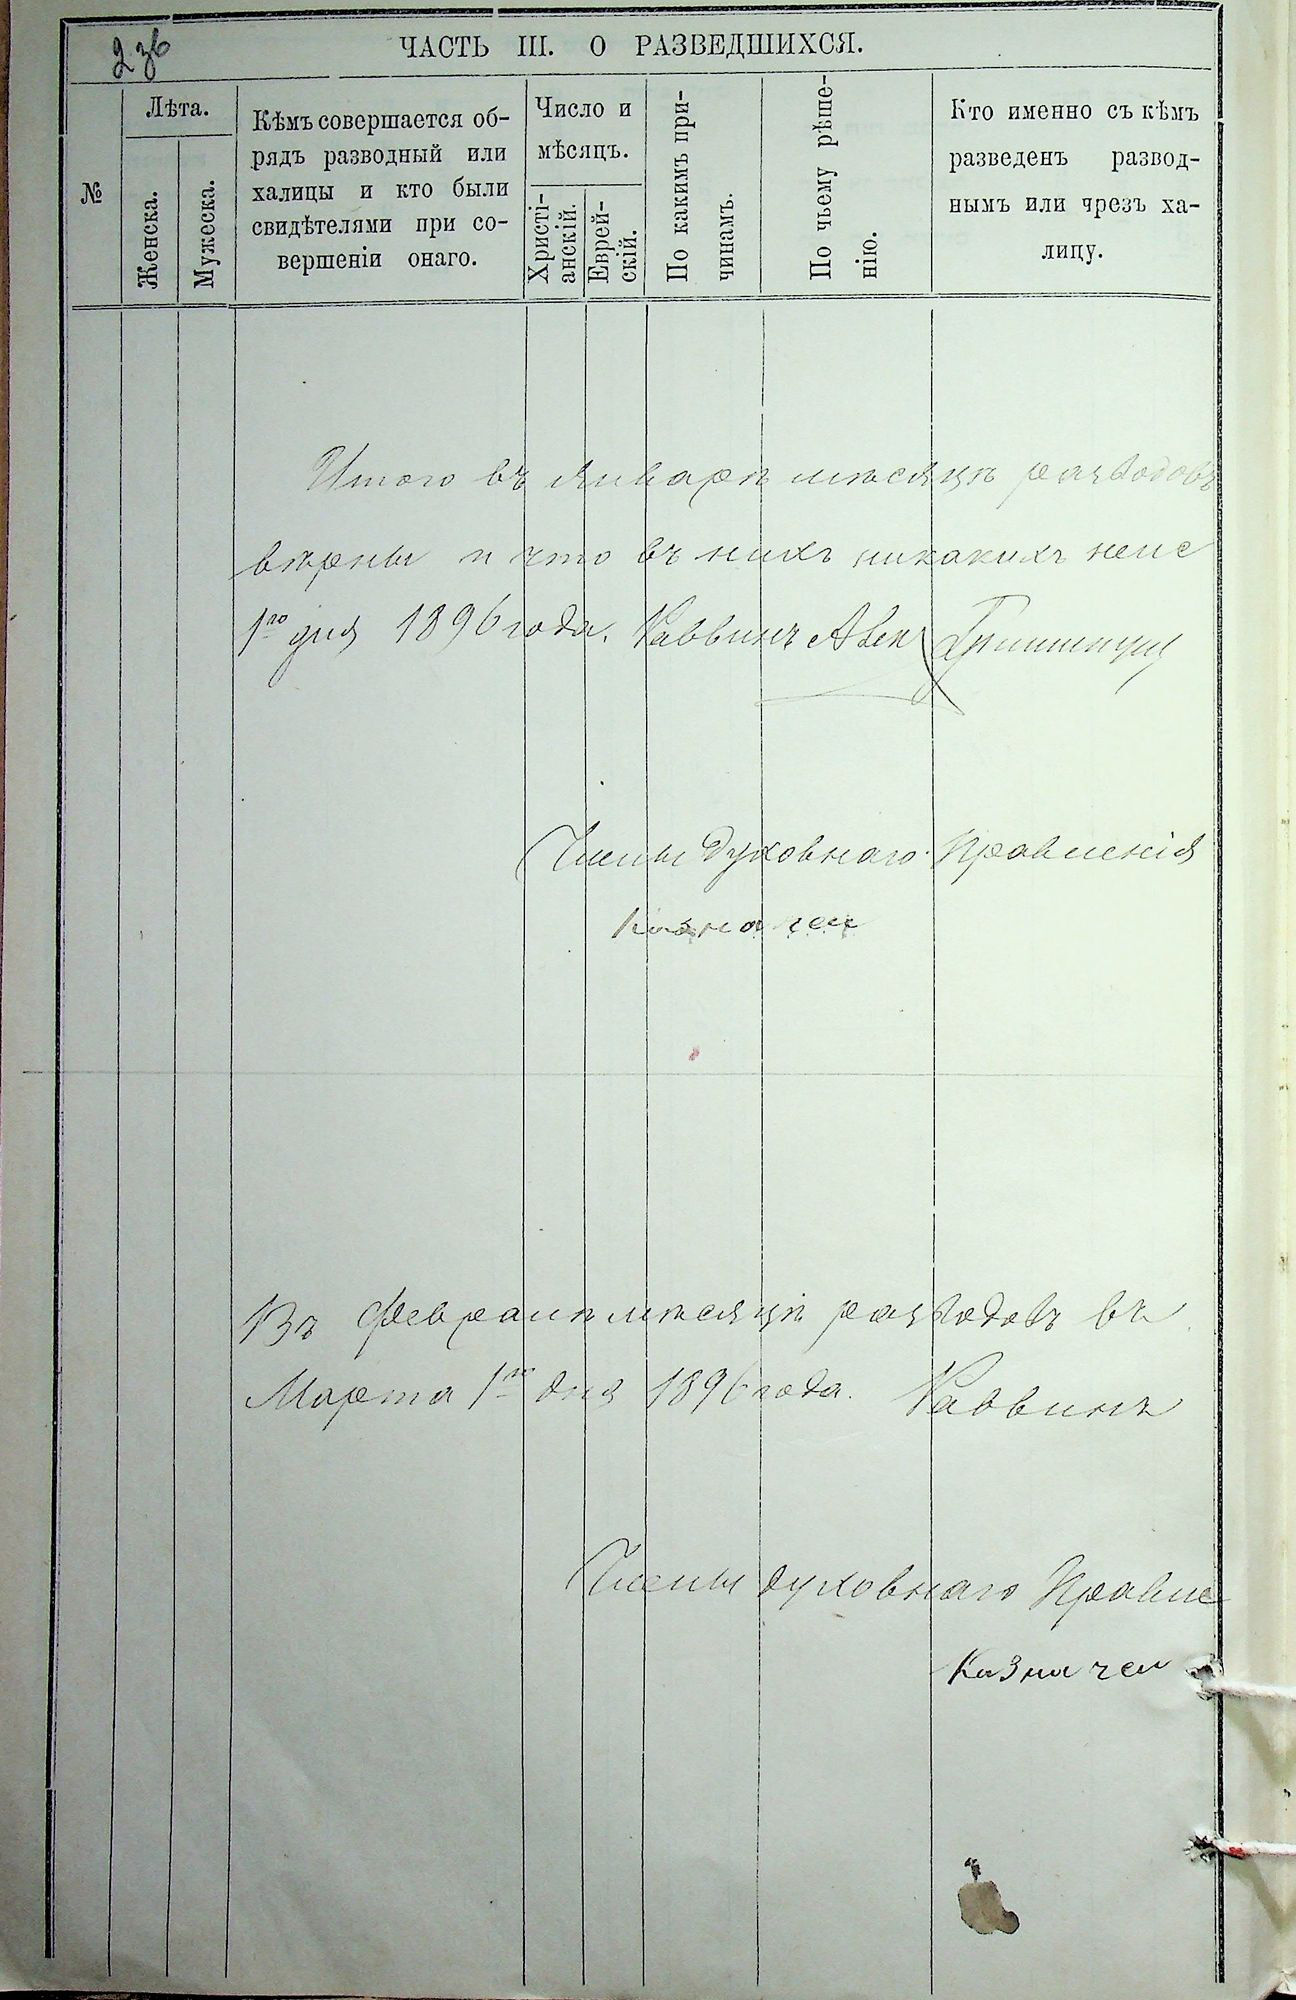 2 зв
ЧАСТЬ III. О РАЗВЕДШИХСЯ.
№
Лѣта.
Женска.
Мужеска.
Кѣмъ совершается об-
рядъ разводный или
халицы и кто были
свидѣтелями при со-
вершеніи онаго.
Число и
мѣсяцъ.
Христі-
анскій.
Еврей-
скій.
По какимъ при-
чинамъ.
По чьему рѣше-
нію.
Кто именно съ кѣмъ
разведенъ развод-
нымъ или чрезъ ха-
лицу.
Итого въ Январѣ мѣсяцѣ разводовъ
вѣрны и что въ нихъ никакихъ неис
1го дня 1896 года. Раввинъ
Члены Духовнаго Правленія
Казначей
Въ Февралѣ мѣсяцѣ разводовъ
Марта 1го дня 1896 года. Раввинъ
Члены духовнаго Правле
Казначей